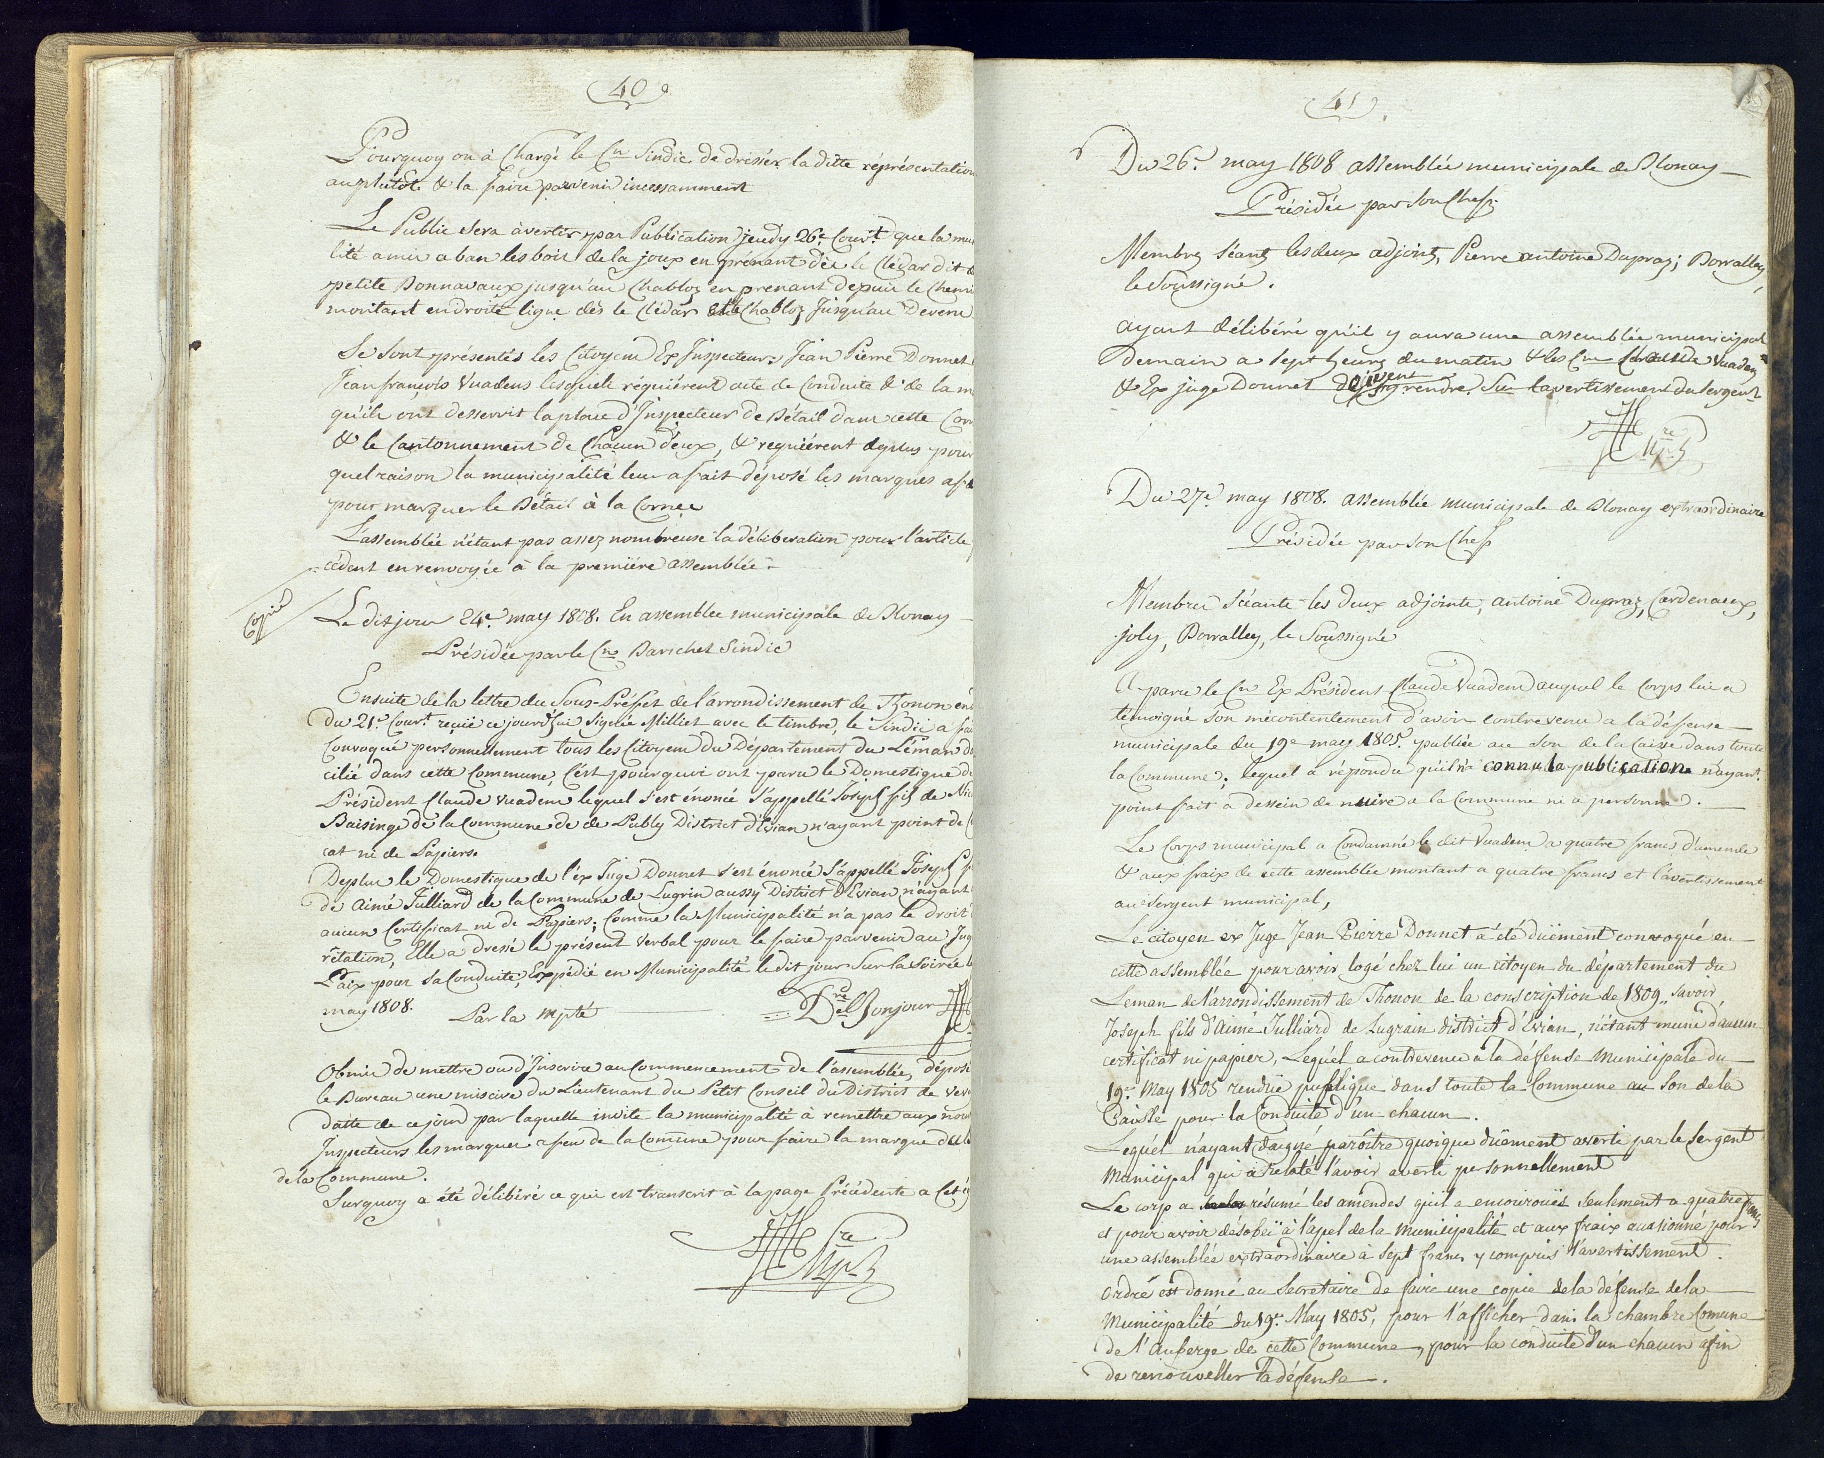 40
Pourquoy on à Chargé le Cn Sindic de drésser la ditte réprésentation
auplutôt & la faire parvenir incessamment
Le Public sera àvertir par Publication jeudy 26e Courrt que la mu
lité a mis a ban les bois de la joux en prénant dès le Clédar dit
petite Bonnavaux jusqu'au Chabloz en prenant depuis le Chemi
montant en droite ligne dès le Clédar Chabloz Jusqu'au Deveru
Se Sont présentés les Citoyens Ex Inspecteurs Jean Pierre Donnet
Jean françois Vuadens lesquels réquiérent acte de Conduite & de la m
qu'ils ont desservit la place d'Inspecteur de Bétail dans cette Com
& le Cantonnement de Chacun d'eux, & requiérent deplus pour
quel raison la municipalité leur a fait déposé les marques a fe
pour marquer le Bétail à la Corne
L'assemblée n'étant pas assez nombreuse la déliberation pour l'article
cédent en renvoyée à la premiére assemblée
Copié
Le dit jour 24e may 1808. En assemblée municipale de Blonay
Présidée par le Cn Barichet Sindic
Ensuite de la lettre du Sous-Préfet de l'arrondissement de Thonon en
du 21e Courrt reçüe ce jourd'hui Signée Milliet avec le timbre, le Sindic a fa
Convoqué personnellement tous les Citoyens du Département du Léman do
cilié dans cette Commune, C'est pourquoi ont paru le Domestique d
Président Claude Vuadens lequel s'est énoncé S'appellé Joseph fils de Ni
Baisinge de la Commune de de Publy District d'Evian n'ayant point de C
cat ni de Papiers.
Deplus le Domestique de l'éx Juge Donnet s'est énoncé S'appellé Joseph f
de Aimé Julliard de la Commune de Lugrin aussy District d'Evian n'ayant
aucun Certificat ni de Papiers; Comme la Municipalité n'a pas le droit
rétation, Elle a dressé le présent verbal pour le faire parvenir au Jug
Paix pour sa Conduite; Expédié en Municipalité le dit jour Sur la Soirée
may 1808. Par la Mpté Bonjour
Obmis de mettre ou d'Inscrire au Commencement de l'assemblée, déposé
le Bureau une miscive du Lieutenant du Petit Conseil du District de Veve
datte de ce jour par laquelle invite la municipalité à remettre aux nou
Inspecteurs les marques a feu de la Commune pour faire la marque du
de la Commune.
Surquoy a été délibéré ce qui est transcrit à la page Précédente a Cet é
41
Du 26e may 1808 assemblée municipale de Blonay
Présidée par Son Chef.
Membres séants les deux adjoints, Pierre antoine Dupraz; Borralley,
le Soussigné.
ayant délibéré qu'il y aura une assemblée municipal
demain a sept heures du matin & les Cns Claude Vuadens
& Ex juge Donnet doivent s'y rendre Sur l'avertissement du Sergent
Du 27e may 1808. assemblée municipale de Blonay extraordinaire
Présidée par Son Chef
Membres Séants les deux adjoints, antoine Dupraz, Cardenaux,
joly, Borralley, le Soussigné
A paru le Cn Ex Président Claude Vuadens auquel le Corps lui a
témoigné son mécontentement d'avoir contrevenu a la défense
municipale du 19e may 1805. publiée au Son de la Caisse dans toute
la Commune; lequel a répondu qu'il n'a connu la publication n'ayant
point fait a dessein de nuire a la Commune ni a personne.
Le Corps municipal a Condamné le dit Vuadens a quatre francs d'amende
& aux fraix de cette assemblée montant a quatre francs et l'avertissement
au Sergent municipal,
Le citoyen ex Juge Jean Pierre Donnet a été düement convoqué en
cette assemblée pour avoir logé chez lui un citoyen du département du
Leman de l'arrondissement de Thonon de la conscription de 1809,, Savoir
Joseph fils d'Aimé Julliard de Lugrain district d'Evian, n'étant muni d'aucun
certificat ni papier, Lequel a contrevenu à la déffense Municipale du
19e May 1805 rendüe puplique dans toute la Commune au Son de la
Caisse pour la Conduite d'un chacun.
Lequel n'ayant daigné parôitre quoique düement averti par le Sergent
Municipal qui a relaté l'avoir averti personnellement
Le corp a résumé les amendes qu'il a encourouës seulement a quatre francs
et pour avoir désobéï à l'apel de la Municipalité et aux fraix occasionné pour
une assemblée extraordinaire à Sept francs y compris l'avertissement.
Ordre est donné au Secretaire de faire une copie de la défense de la
Municipalité du 19e May 1805, pour l'afficher dans la chambre Comune
de l'Auberge de cette Commune, pour la conduite d'un chacun afin
de renouveller la défense.